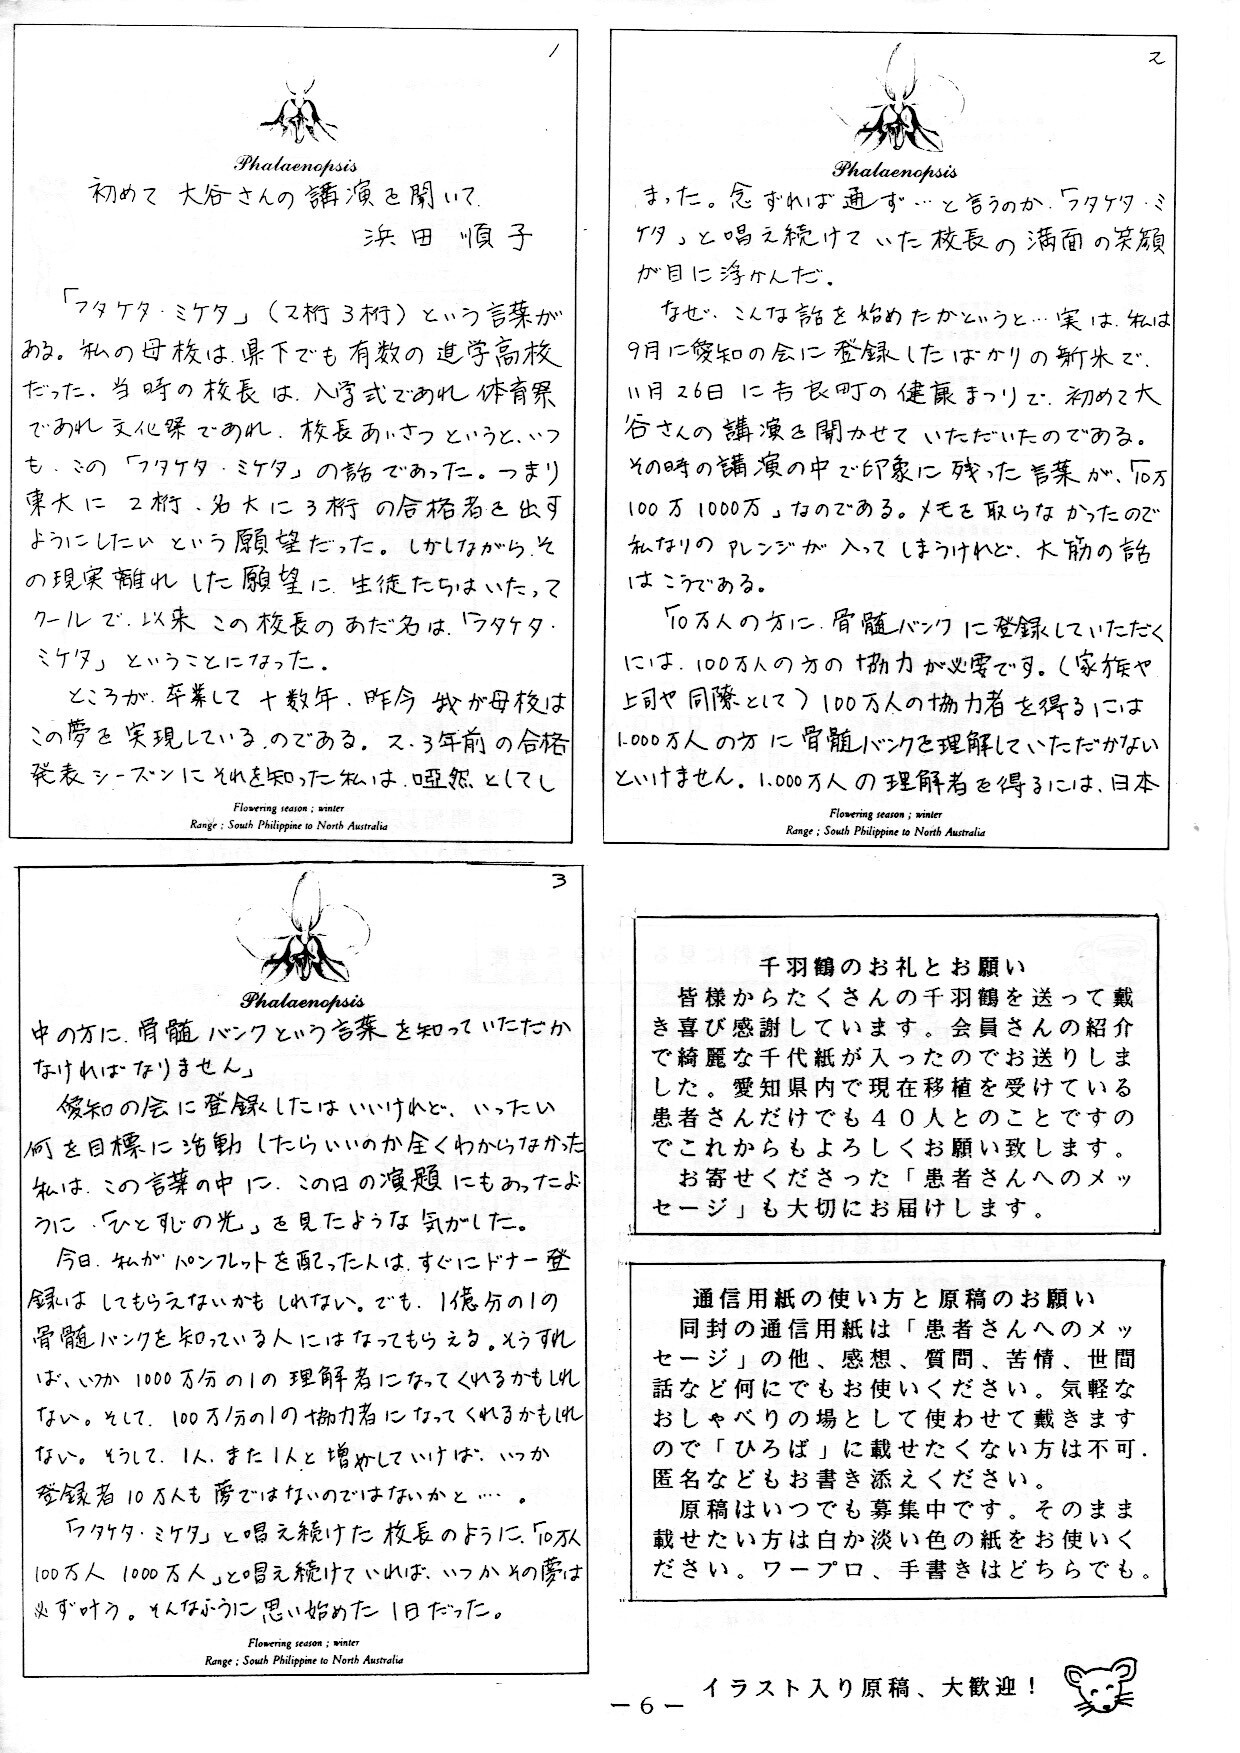 1
Phalaenopsis
初めて 大谷さんの講演を聞いて.
浜田 順子
「フタケタ・ミケタ」（2桁3桁）という言葉が
ある。私の母校は.県下でも有数の進学高校
だった. 当時の校長は. 入学式であれ 体育祭
であれ 文化祭であれ. 校長あいさつというと、いつ
も. この「フタケタ・ミケタ」の話であった。つまり
東大に 2桁. 名大に3桁 の合格者を出す
ようにしたい という願望だった。しかしながら. そ
の現実離れした願望に. 生徒たちはいたって
クールで. 以来 この校長のあだ名は.「フタケタ・
ミケタ」ということになった.
ところが. 卒業して 十数年. 昨今 我が母校は
この夢を実現している.のである。2.3年前の合格
発表シーズンにそれを知った私は. 唖然としてし
Flowering season ; winter
Range ; South Philippine to North Australia
2
Phalaenopsis
まった。念ずれば通ず…と言うのか.「フタケタ・ミ
ケタ」と唱え続けていた校長の満面の笑顔
が目に浮かんだ.
なぜ. こんな話を始めたかというと… 実は. 私は
9月に愛知の会に登録したばかりの新米で.
11月26日に吉良町の健康まつりで. 初めて大
谷さんの講演を聞かせていただいたのである。
その時の講演の中で印象に残った言葉が.「10万
100万 1000万」なのである。メモを取らなかったので
私なりのアレンジが入ってしまうけれど. 大筋の話
はこうである。
「10万人の方に. 骨髄バンクに登録していただく
には. 100万人の方の協力が必要です。（家族や
上司や同僚として）100万人の協力者を得るには
1.000万人の方に骨髄バンクを理解していただかない
といけません。1.000万人の理解者を得るには. 日本
Flowering season ; winter
Range ; South Philippine to North Australia
3
Phalaenopsis
中の方に. 骨髄バンクという言葉を知っていただか
なければなりません」
愛知の会に登録したはいいけれど. いったい
何を目標に活動したらいいのか全くわからなかった
私は. この言葉の中に. この日の演題にもあったよ
うに.「ひとすじの光」を見たような気がした。
今日. 私がパンフレットを配った人は. すぐにドナー登
録は してもらえないかもしれない。でも. 1億分の1の
骨髄バンクを知っている人にはなってもらえる。そうすれ
ば、いつか 1000万分の1の 理解者になってくれるかもしれ
ない。そして. 100万分の1の協力者になってくれるかもしれ
ない。そうして. 1人. また1人と増やしていけば. いつか
登録者10万人も夢ではないのではないかと….
「フタケタ・ミケタ」と唱え続けた校長のように.「10万人
100万人 1000万人」と唱え続けていれば. いつかその夢は
必ず叶う。そんなふうに思い始めた1日だった。
Flowering season ; winter
Range ; South Philippine to North Australia
千羽鶴のお礼とお願い
皆様からたくさんの千羽鶴を送って戴
き喜び感謝しています。会員さんの紹介
で綺麗な千代紙が入ったのでお送りしま
した。愛知県内で現在移植を受けている
患者さんだけでも４０人とのことですの
でこれからもよろしくお願い致します。
お寄せくださった「患者さんへのメッ
セージ」も大切にお届けします。
通信用紙の使い方と原稿のお願い
同封の通信用紙は「患者さんへのメッ
セージ」の他、感想、質問、苦情、世間
話など何にでもお使いください。気軽な
おしゃべりの場として使わせて戴きます
ので「ひろば」に載せたくない方は不可.
匿名などもお書き添えください。
原稿はいつでも募集中です。そのまま
載せたい方は白か淡い色の紙をお使いく
ださい。ワープロ、手書きはどちらでも。
イラスト入り原稿、大歓迎！
－6－